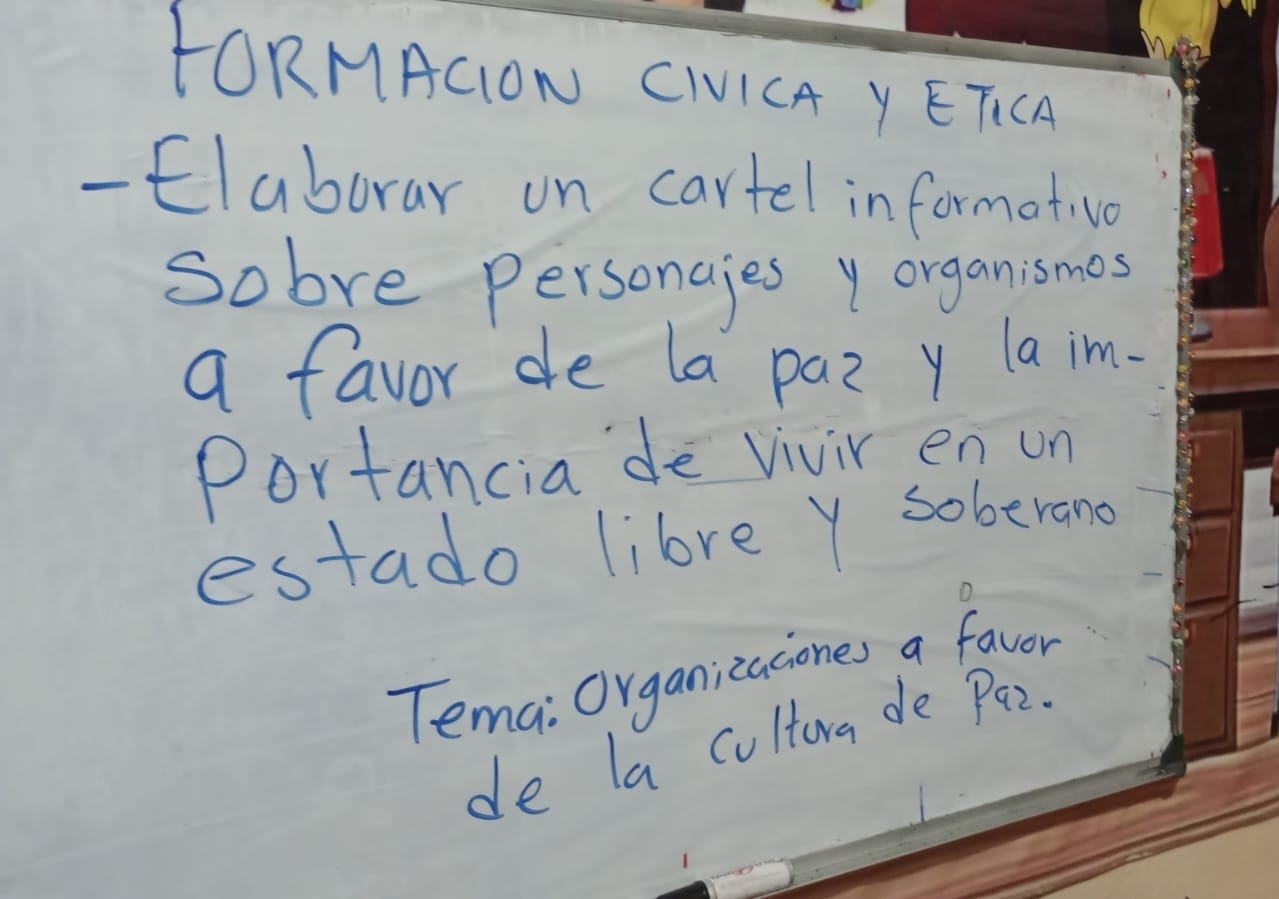 FORMACION CIVICA Y ETICA
- Elaborar un cartel informativo
sobre personajes y organismos
a favor de la paz y la im-
portancia de vivir en un
estado libre y soberano
Tema: Organizaciones a favor
de la cultura de Paz.